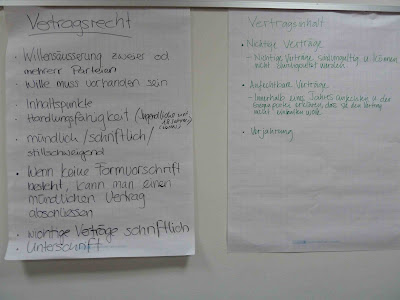 Vertragsrecht
• Willensäusserung zweier od
mehrerr Parteien
• Wille muss vorhanden sein
• Inhaltspunkte
• Handlungsfähigkeit (Jugendliche
• mündlich/schriftlich/
stillschweigend
• Wenn keine Formvorschrift
besteht, kann man einen
mündlichen Vertrag
abschliessen
• wichtige Verträge schriftlich
• Unterschrift
Vertragsinhalt
• Nichtige Verträge
- Nichtig Verträge u können
nicht werden
• Anfechtbare Verträge
- Innerhalb eines Jahres u der
dass sie den Vertrag
nicht wolle
• Verjährung